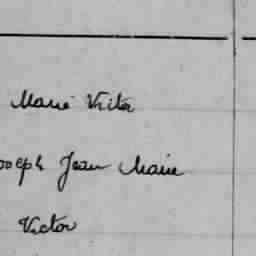 Marie Victor
oseph Jean Marie
Victor